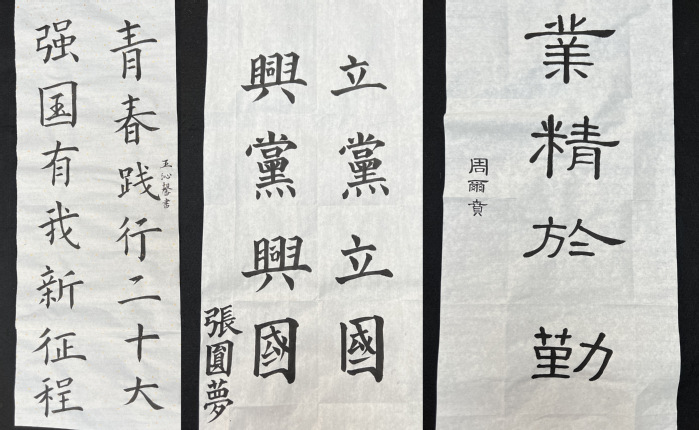 青春践行二十大
强国有我新征程
王沁馨書
立黨立國
興黨興國
張圓夢
業精於勤
周爾賁